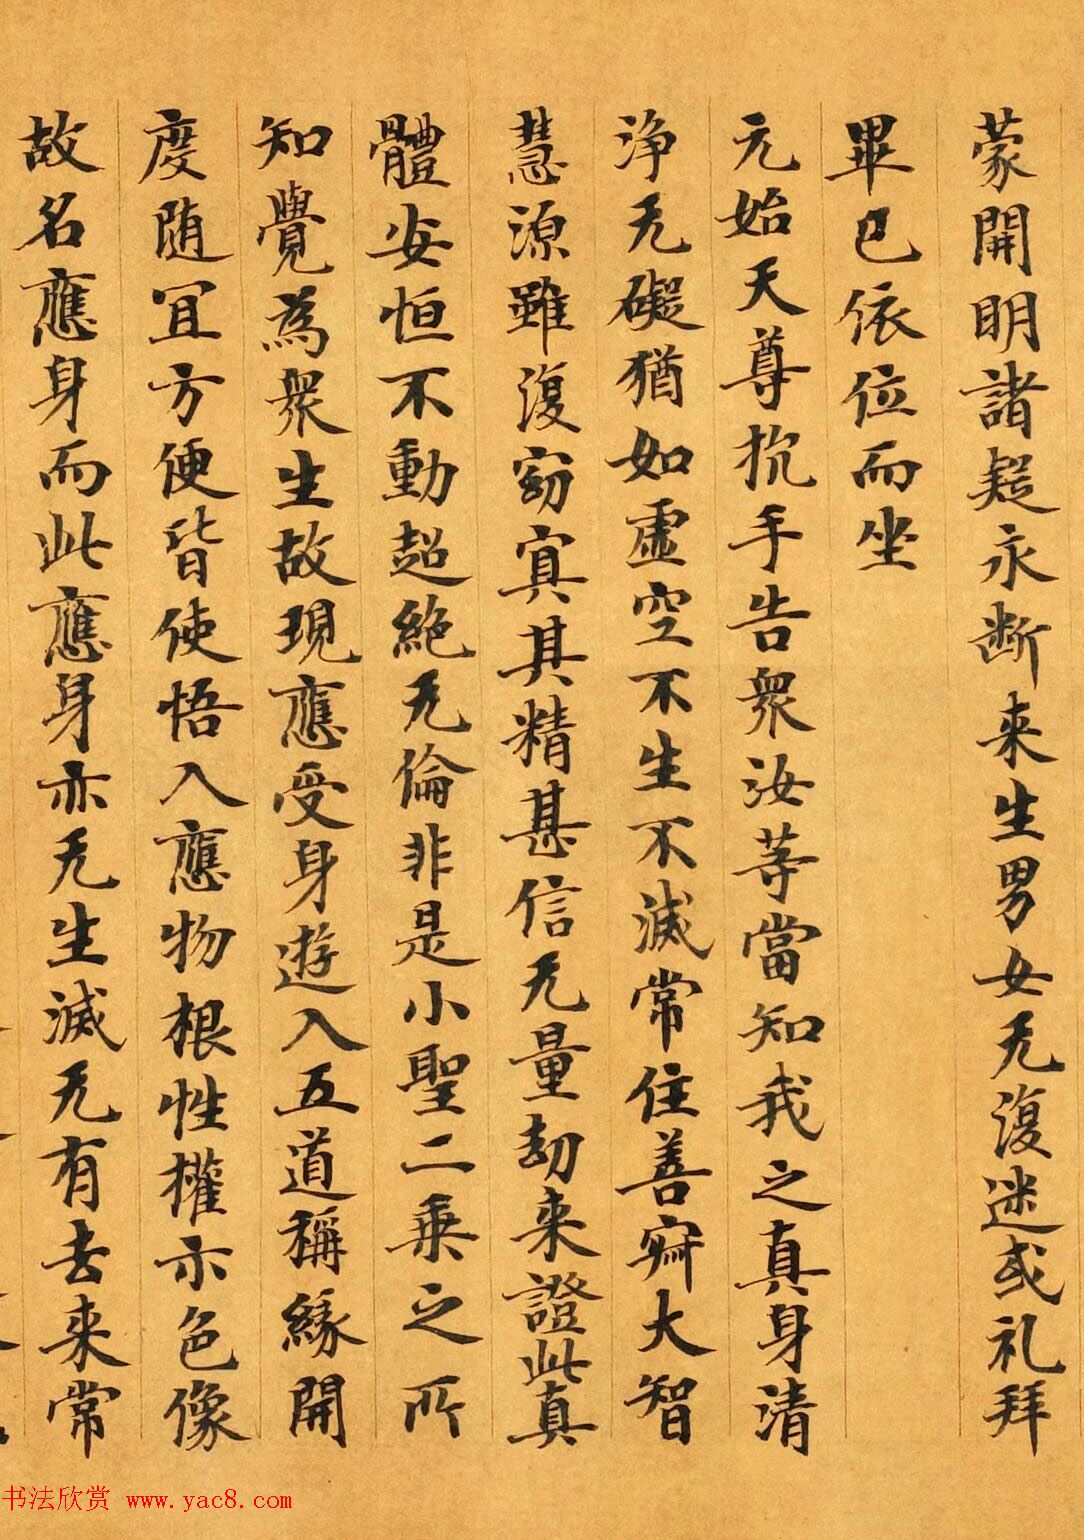 蒙開明諸疑永断来生男女无復迷或礼拜
畢已依位而坐
元始天尊抗手告衆汝等當知我之真身清
浄无礙猶如虛空不生不滅常住善寂大智
慧源雖復窈冥其精甚信无量劫来證此真
體安恒不動超絶无倫非是小聖二乗之所
知覺為衆生故現應受身遊入五道稱緣開
度随冝方便皆使悟入應物根性權示色像
故名應身而此應身亦无生滅无有去来常
书法欣赏 www.yac8.com